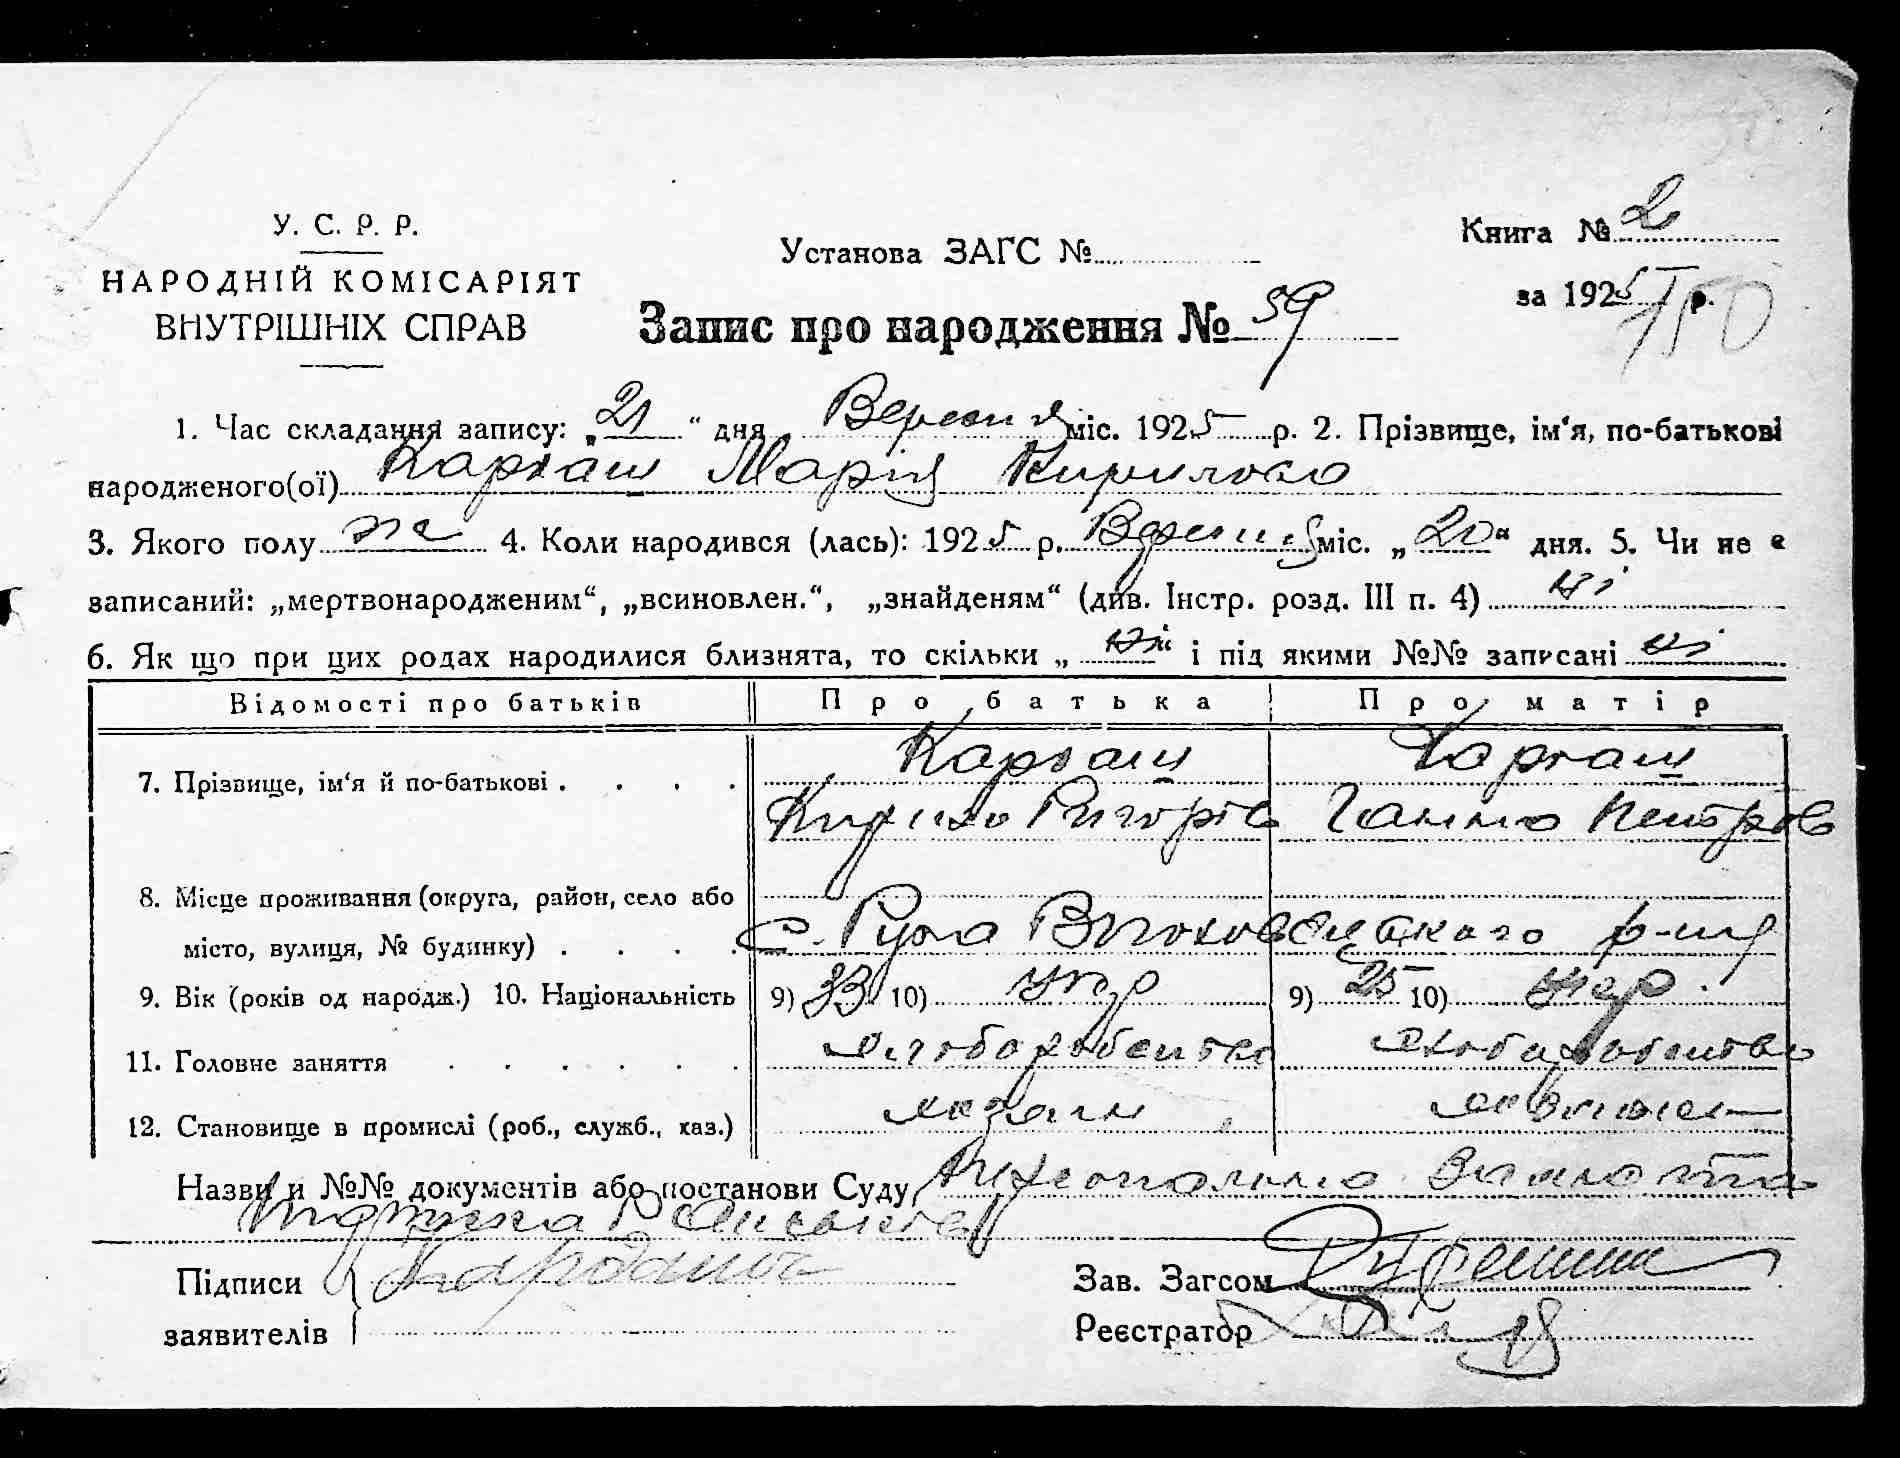 У. С. Р. Р.
НАРОДНІЙ КОМІСАРІЯТ
ВНУТРІШНІХ СПРАВ
Установа ЗАГС №
Книга № 2
за 1925 р.
150
Запис про народження № 59
1. Час складання запису: „21“ дня Вересня міс. 1925 р. 2. Прізвище, ім‘я, по-батькові
народженого(ої) Карташ Марія Кирилова
3. Якого полу ж 4. Коли народився (лась): 1925 р. Вересня міс. „20“ дня. 5. Чи не є
записаний: „мертвонародженим“, „всиновлен.“, „знайденям“ (див. Інстр. розд. III п. 4) ні
6. Як що при цих родах народилися близнята, то скільки „ні“ і під якими №№ записані ні
Відомості про батьків Про батька Про матір
7. Прізвище, ім‘я й по-батькові Карташ Карташ
Кирило Григорів Ганна Петров
8. Місце проживання (округа, район, село або
місто, вулиця, № будинку) с. Руда р-ну
9. Вік (років од народж.) 10. Національність 9) 33 10) укр 9) 25 10) укр.
11. Головне заняття хлоборобство хлоборобство
12. Становище в промислі (роб., служб., хаз.) хазаін
Назви и №№ документів або постанови Суду
Підписи
заявителів
Зав. Загсом
Реєстратор